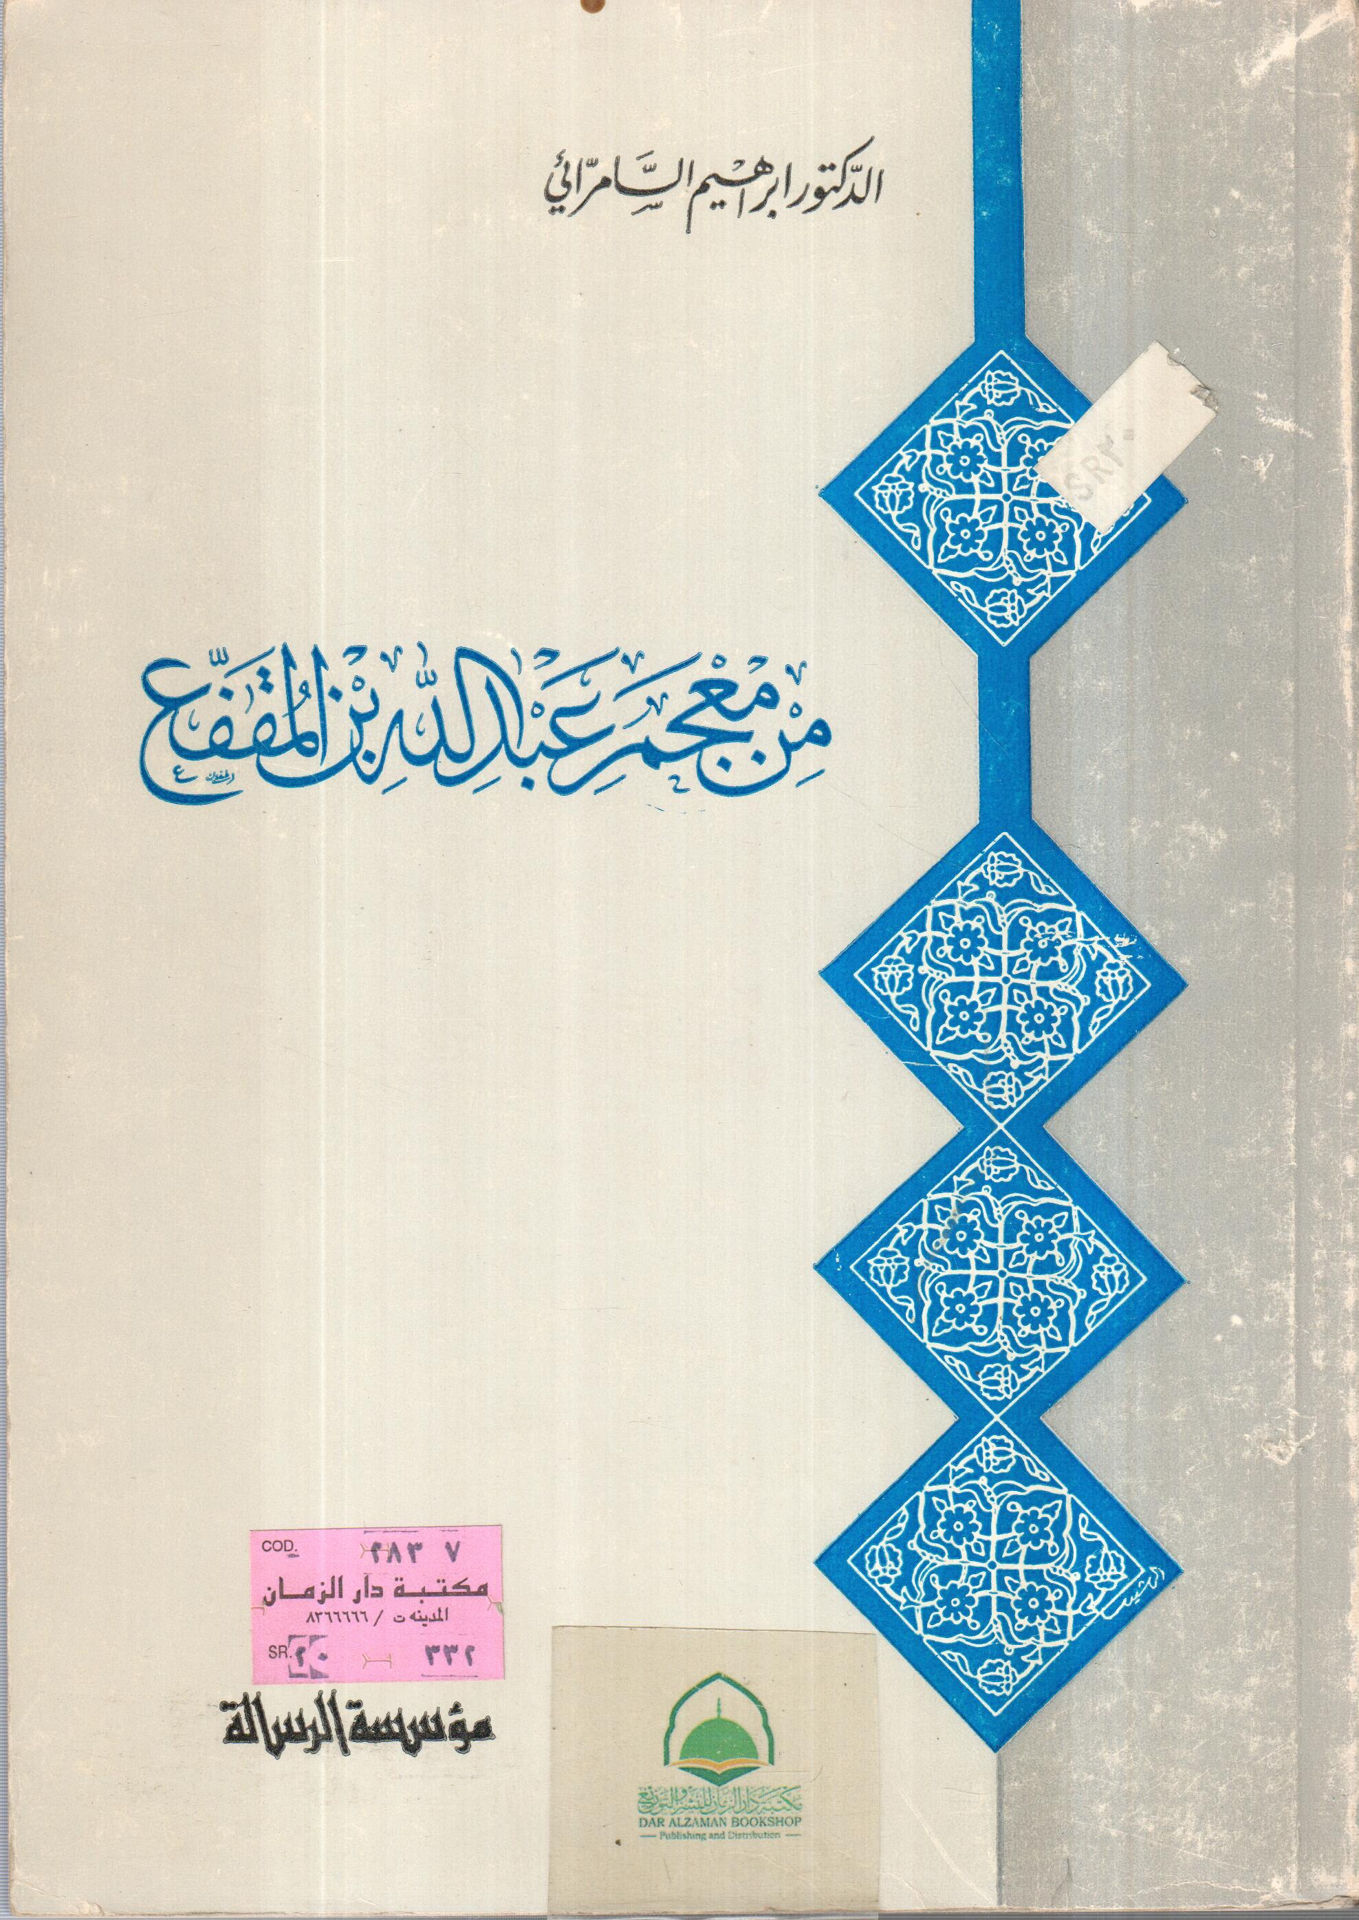 الدكتور ابراهيم السَّامرّائي
SR٢٠
مِنْ مُعْجَمِ عَبْدِ اللهِ بْنِ المُقَفَّع
COD. ٢٨٣ ٧
مكتبة دار الزمان
المدينه ت / ٨٣٦٦٦٦٦
SR. ٢٠ ٣٣٢
مؤسسة الرسالة
مكتبة دار الزمان للنشر والتوزيع
DAR ALZAMAN BOOKSHOP
Publishing and Distribution